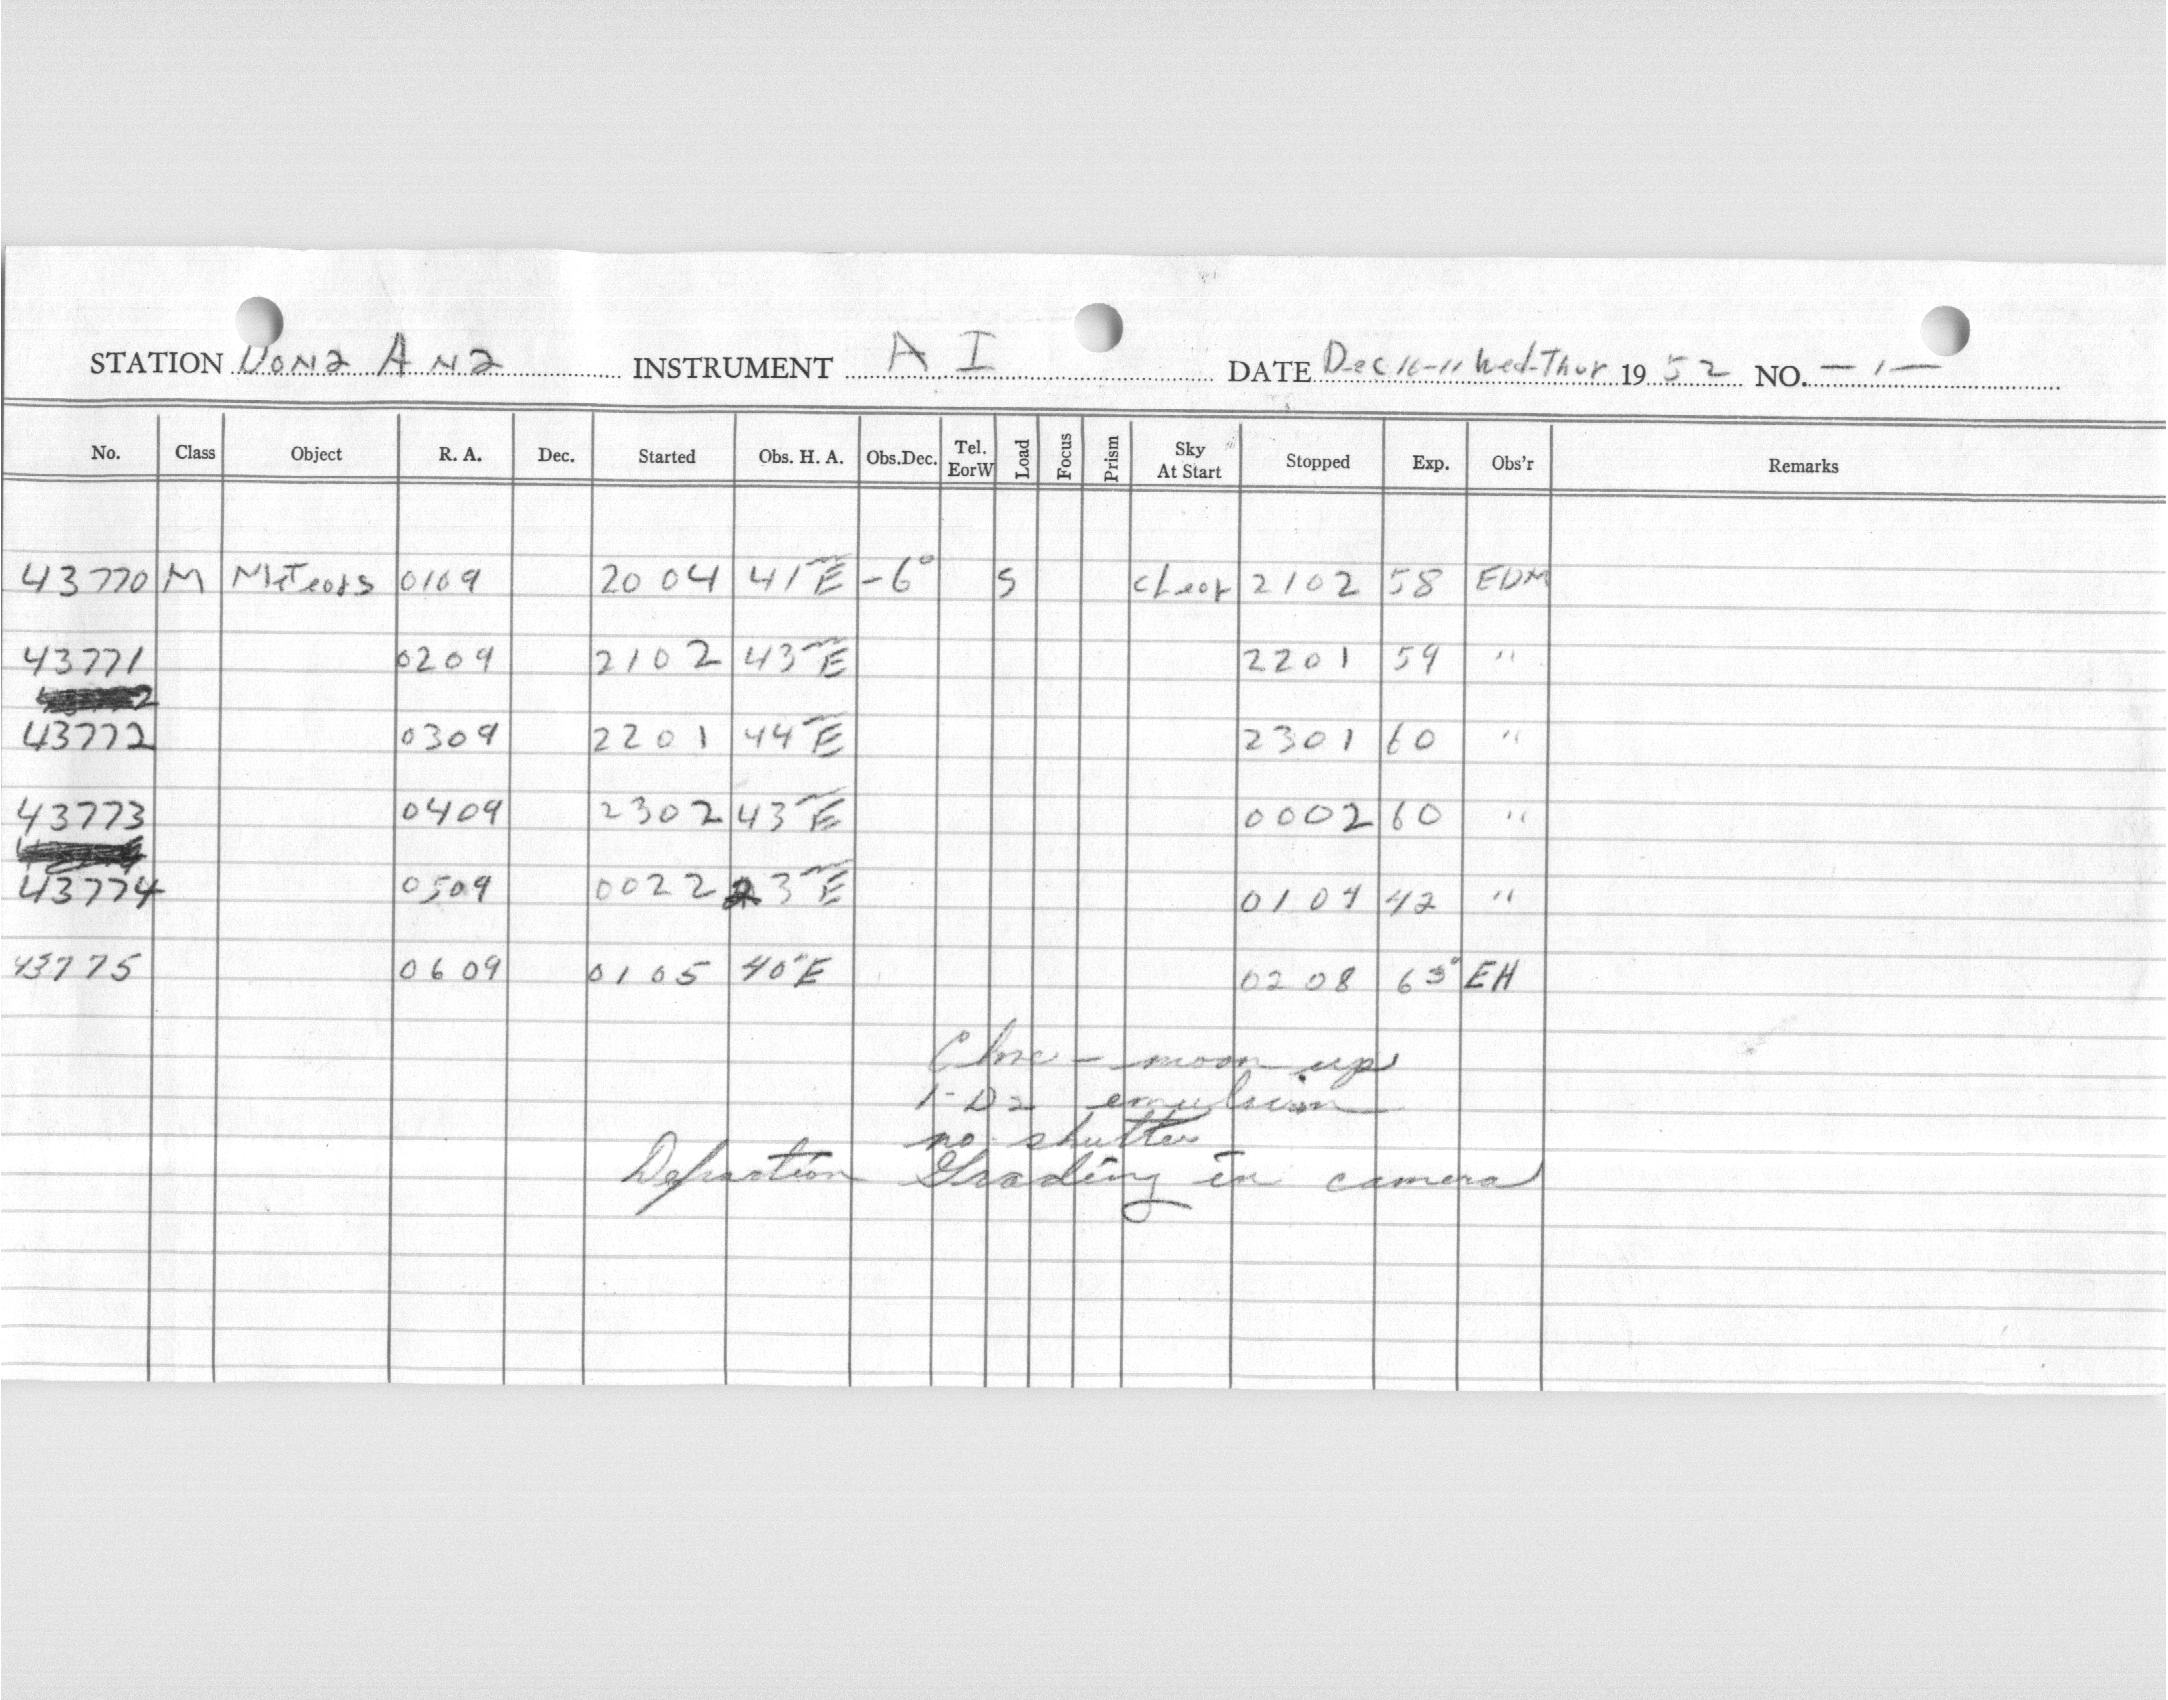 STATION Dona Ana INSTRUMENT A I DATE Dec 10-11 Wed-Thur 1952 NO. -1-
No. Class Object R. A. Dec. Started Obs. H. A. Obs.Dec. Tel. EorW Load Focus Prism Sky At Start Stopped Exp. Obs'r Remarks
43770 M Meteors 0109 2004 41ᵐE -6° S clear 2102 58 EDM
43771 0209 2102 43ᵐE 2201 59 "
43772 0309 2201 44ᵐE 2301 60 "
43773 0409 2302 43ᵐE 0002 60 "
43774 0509 0022 23ᵐE 0104 42 "
43775 0609 0105 40ᵐE 0208 63ᵐ EH
Close - moon up
1-D2 emulsion
no shutter
Defraction Grading in camera